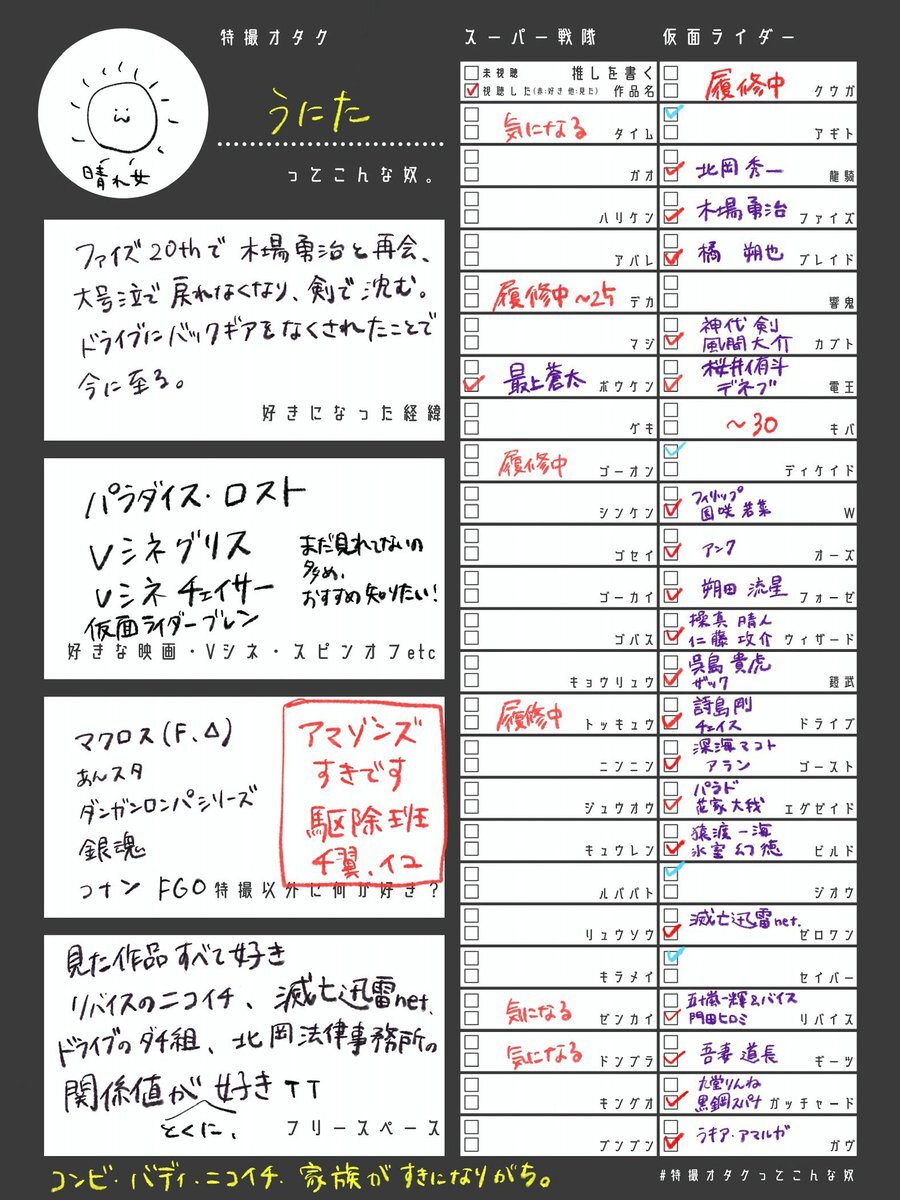 特撮オタク
うにた
ってこんな奴。
晴れ女
ファイズ20thで 木場勇治と再会、
大号泣で戻れなくなり、剣で沈む。
ドライブにバックギアをなくされたことで
今に至る。
好きになった経緯
パラダイス・ロスト
Vシネグリス
Vシネチェイサー
仮面ライダーブレン
まだ見れてないの
多め、
おすすめ知りたい!
好きな映画・Vシネ・スピンオフetc
マクロス(F、Δ)
あんスタ
ダンガンロンパシリーズ
銀魂
コナン FGO
アマゾンズ
すきです
駆除班
千翼、イユ
特撮以外に何が好き?
見た作品すべて好き
リバイスのニコイチ、滅亡迅雷net.
ドライブのダチ組、北岡法律事務所の
関係値が好きTT
とくに、
フリースペース
コンビ・バディ・ニコイチ・家族がすきになりがち。
スーパー戦隊
未視聴 推しを書く
視聴した(赤:好き 他:見た) 作品名
気になる タイム
ガオ
ハリケン
アバレ
履修中~25 デカ
マジ
最上蒼太 ボウケン
ゲキ
履修中 ゴーオン
シンケン
ゴセイ
ゴーカイ
ゴバス
キョウリュウ
履修中 トッキュウ
ニンニン
ジュウオウ
キュウレン
ルパパト
リュウソウ
キラメイ
気になる ゼンカイ
気になる ドンブラ
キングオ
ブンブン
仮面ライダー
履修中 クウガ
アギト
北岡秀一 龍騎
木場勇治 ファイズ
橘 朔也 ブレイド
響鬼
神代 剣
風間大介 カブト
桜井侑斗
デネブ 電王
~30 キバ
ディケイド
フィリップ
園咲若菜 W
アンク オーズ
朔田 流星 フォーゼ
操真 晴人
仁藤 攻介 ウィザード
呉島 貴虎
ザック 鎧武
詩島 剛
チェイス ドライブ
深海マコト
アラン ゴースト
パラド
花家大我 エグゼイド
猿渡 一海
氷室 幻徳 ビルド
ジオウ
滅亡迅雷net. ゼロワン
セイバー
五十嵐一輝&バイス
門田ヒロミ リバイス
吾妻 道長 ギーツ
九堂りんね
黒鋼スパナ ガッチャード
ラキア・アマルガ ガヴ
#特撮オタクってこんな奴